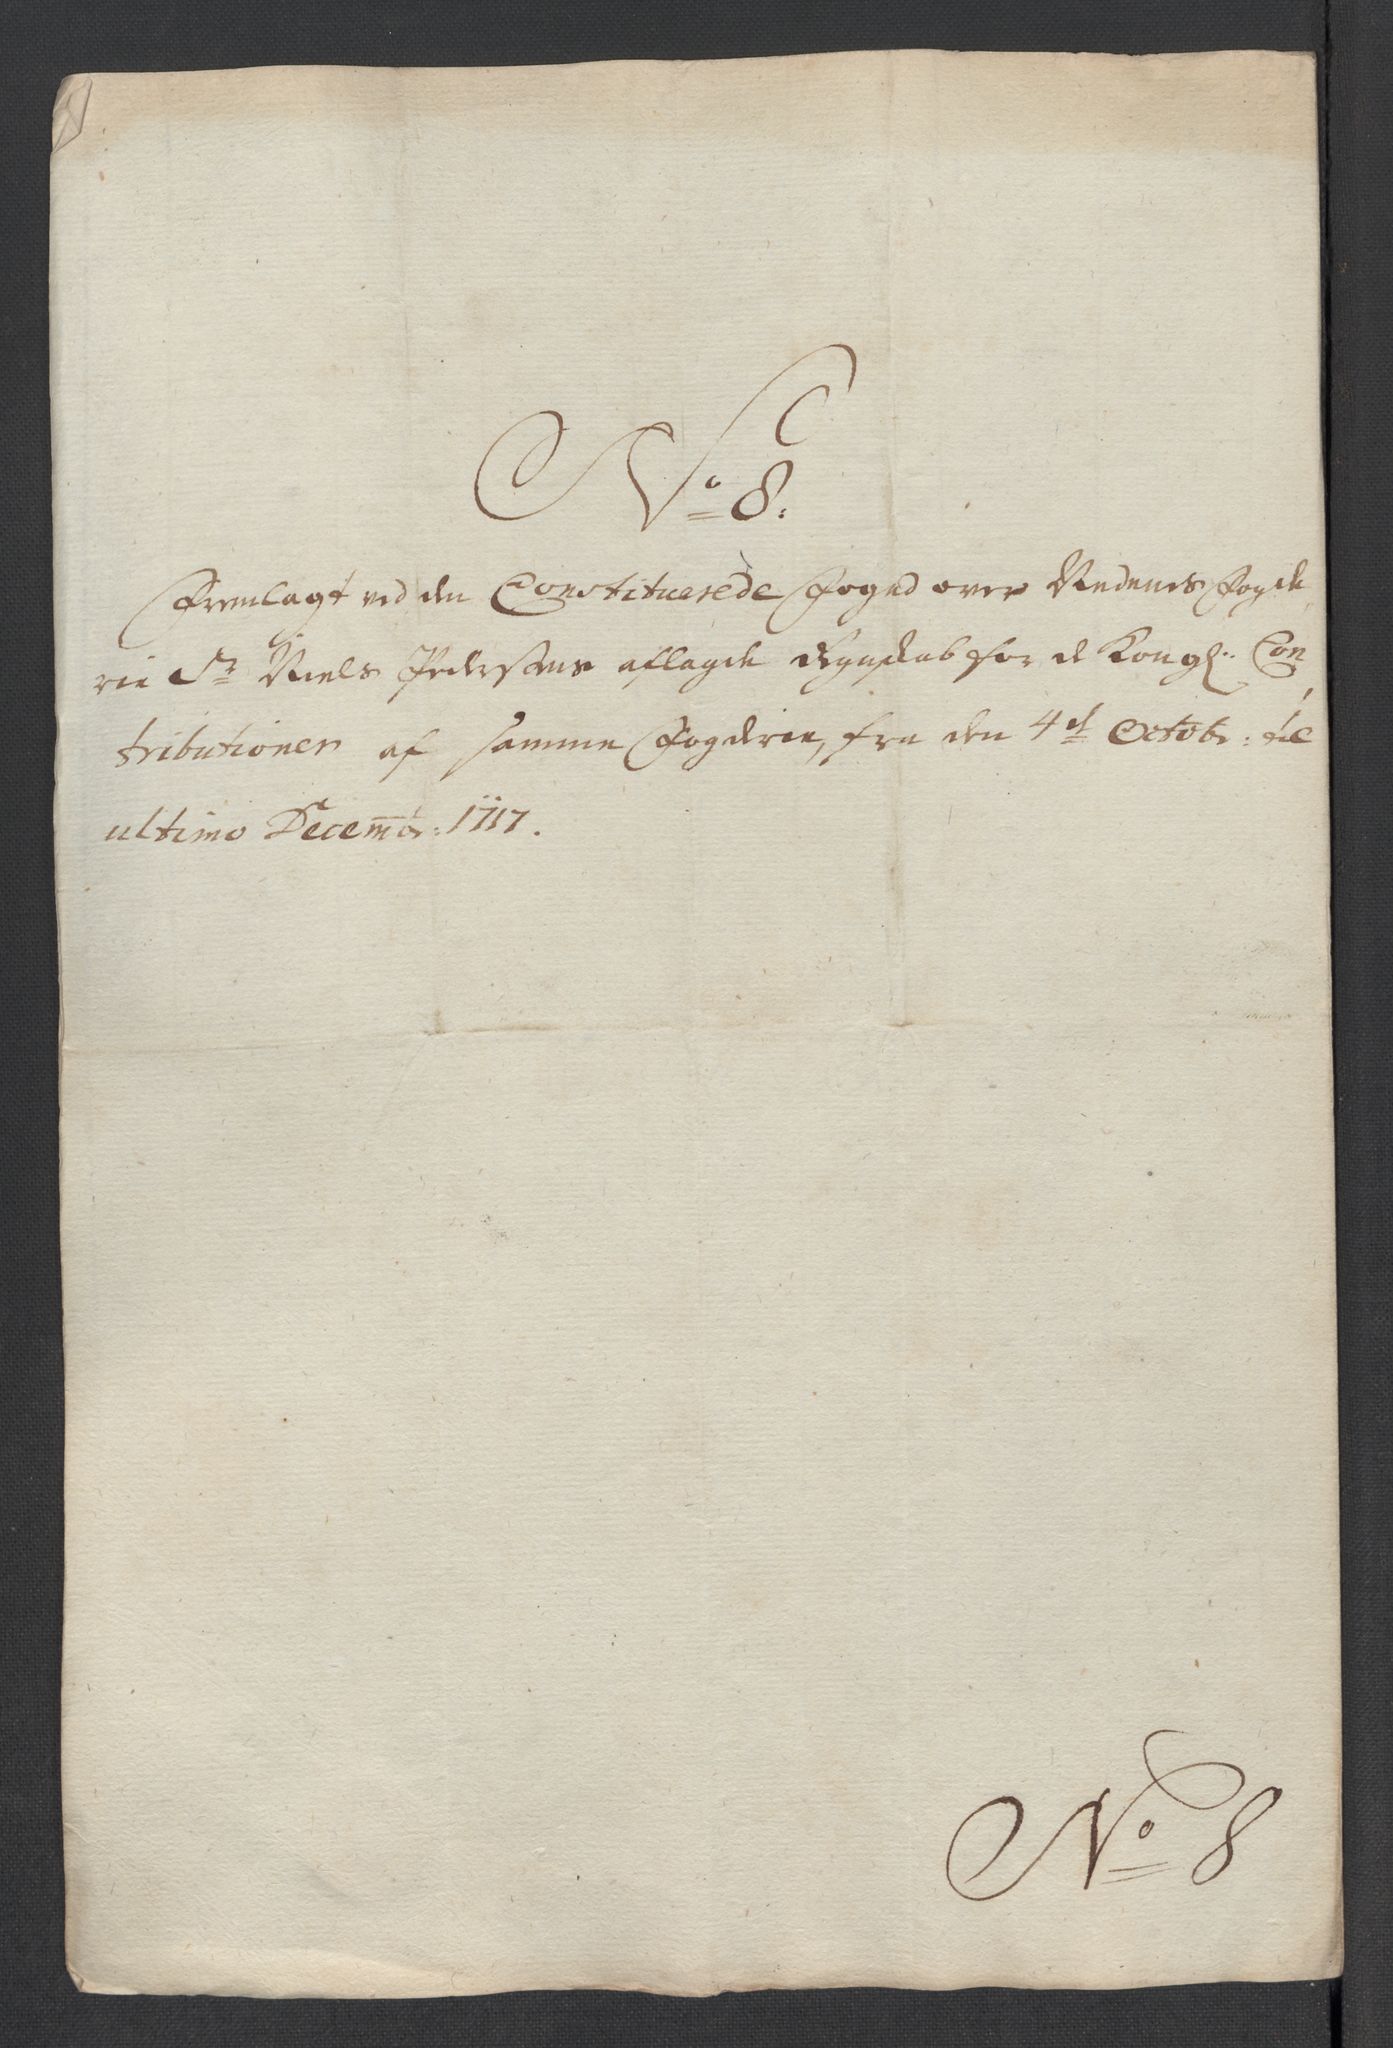 No 8.
Fremlagt ved den Constituerede Foged over Nedenes Fogde
rie Sr Niels Pedersens aflagde Regnskab for de Kongl: Con
tributioner af samme Fogderie, fra den 4de Octobr: til
ultimo Decembr: 1717.
No 8